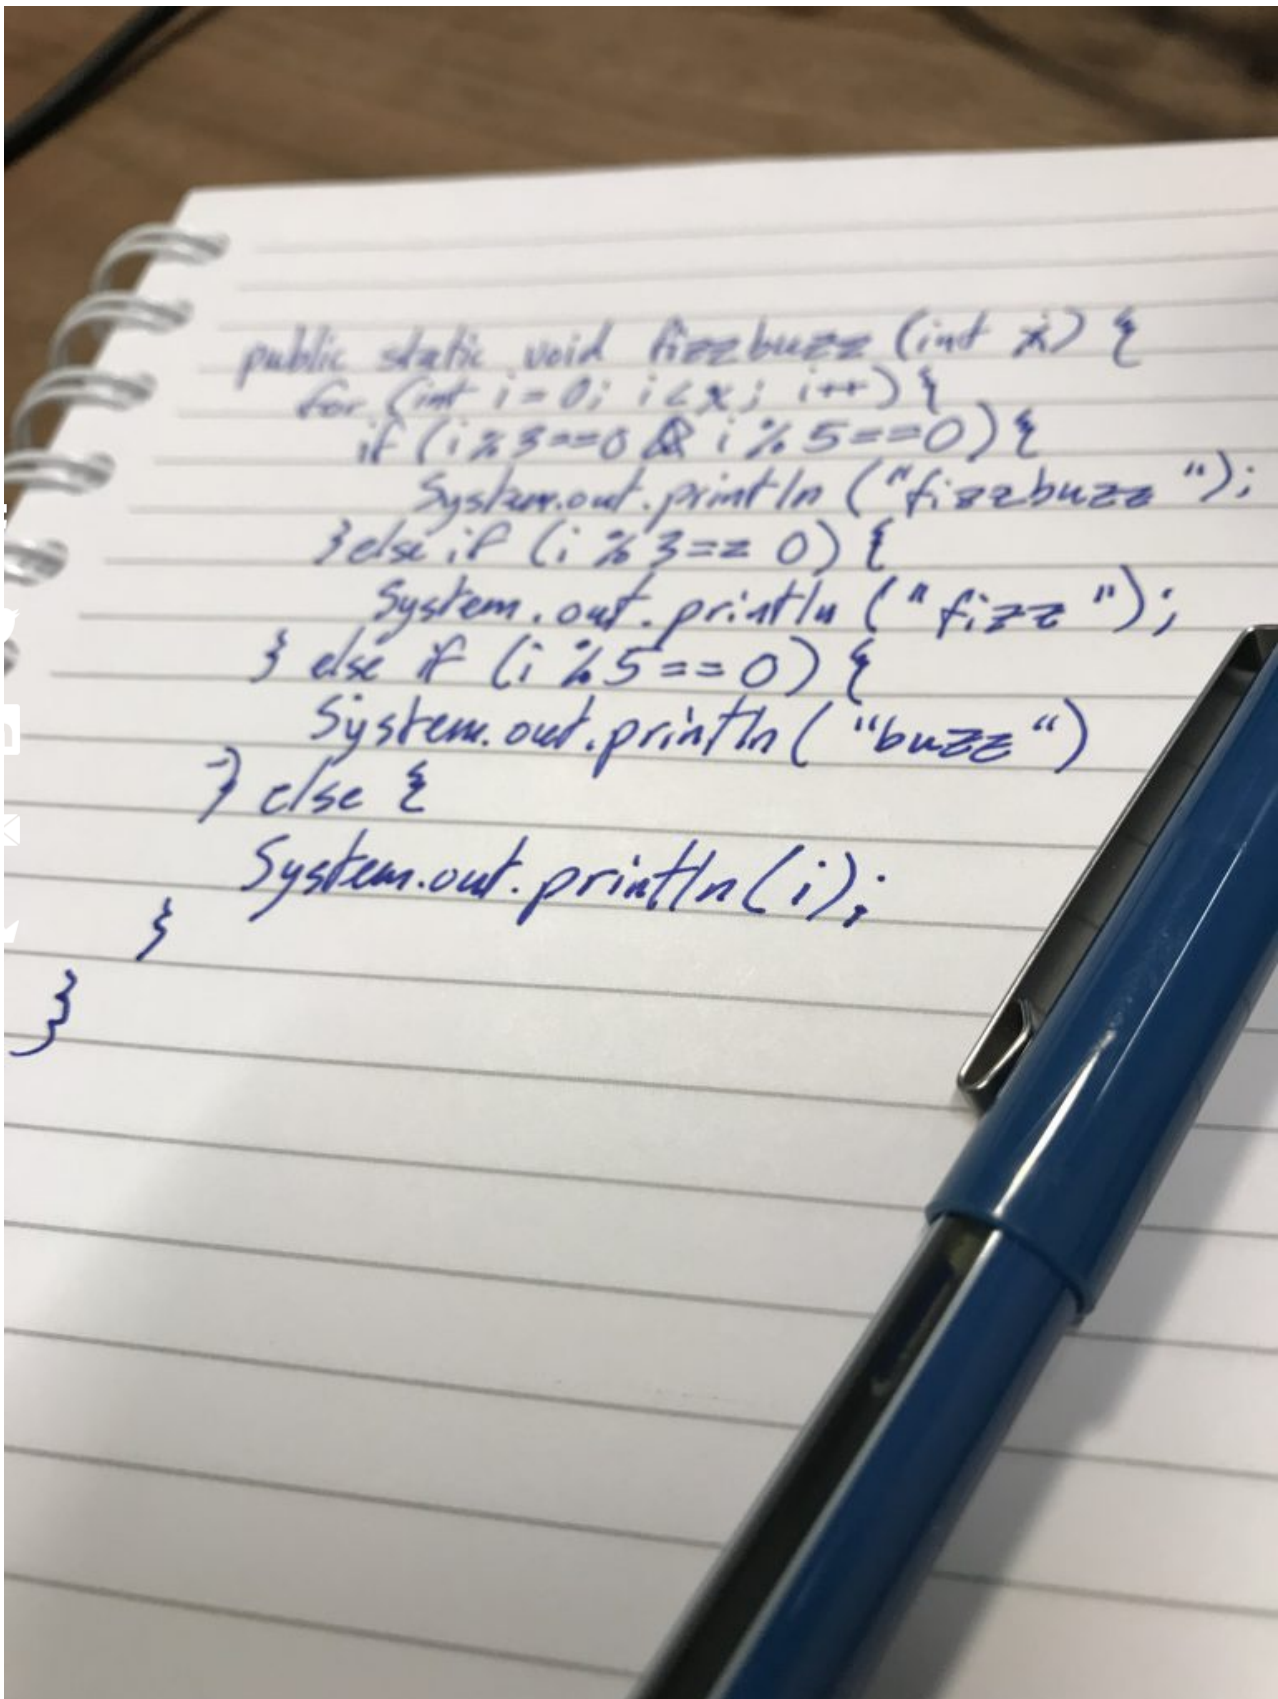 public static void fizzbuzz (int x) {
for (int i = 0; i < x; i++) {
if (i % 3 == 0 & i % 5 == 0) {
System.out.println ("fizzbuzz");
} else if (i % 3 == 0) {
System.out.println ("fizz");
} else if (i % 5 == 0) {
System.out.println ("buzz")
} else {
System.out.println(i);
}
}